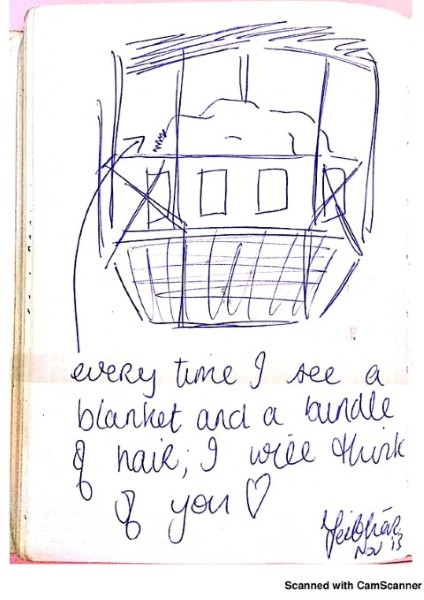 every time I see a
blanket and a bundle
of hair, I will think
of you ♡
Nov 13
Scanned with CamScanner